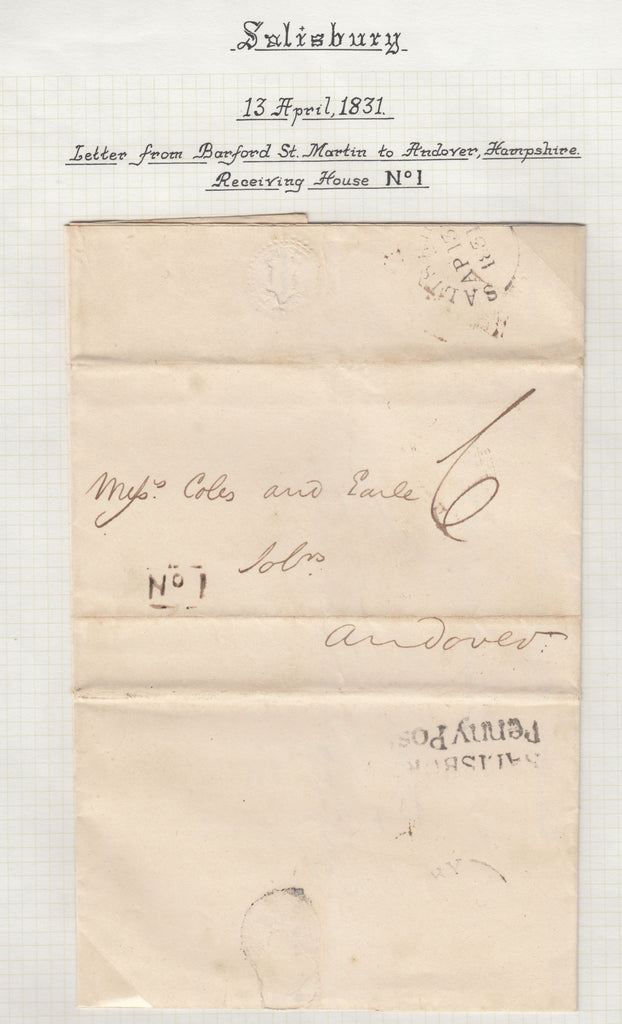 Salisbury
13 April, 1831.
Letter from Barford St. Martin to Andover, Hampshire.
Receiving House Nº 1
AP 13
1831
6
Messrs. Coles and Earle
Solrs
Nº 1
Andover.
SALISBUR
Penny Pos
RY